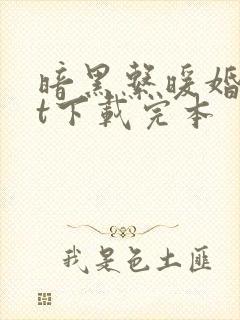 暗黑系暖婚
t下载完本
我是色土匪